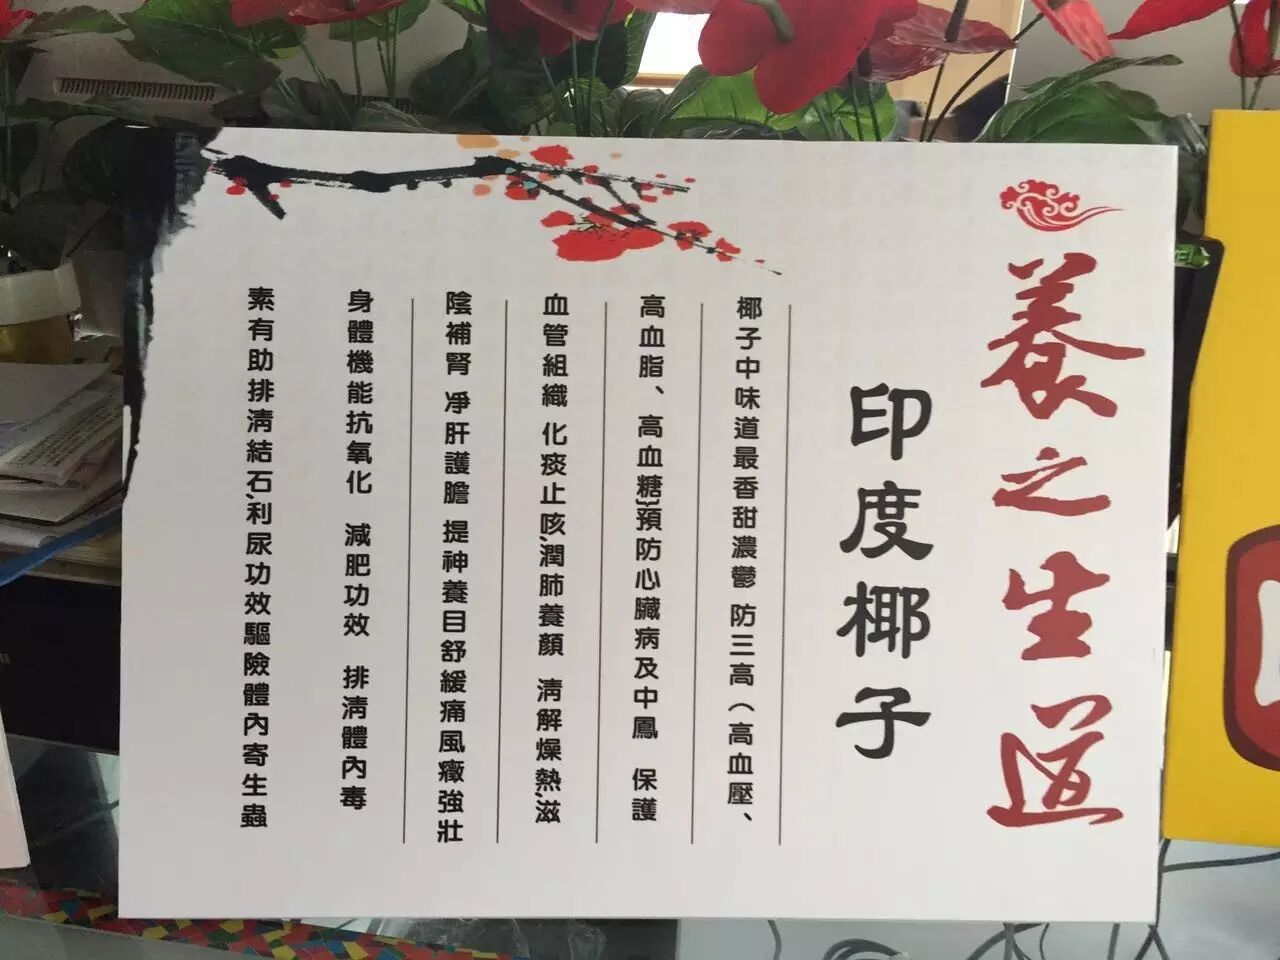 養之生道
印度椰子
椰子中味道最香甜濃鬱 防三高（高血壓、
高血脂、高血糖)預防心臟病及中鳳 保護
血管組織 化痰止咳,潤肺養顏 淸解燥熱,滋
陰補腎 凈肝護膽 提神養目舒緩痛風癥強壯
身體機能抗氧化 減肥功效 排淸體內毒
素有助排淸結石,利尿功效驅險體內寄生蟲